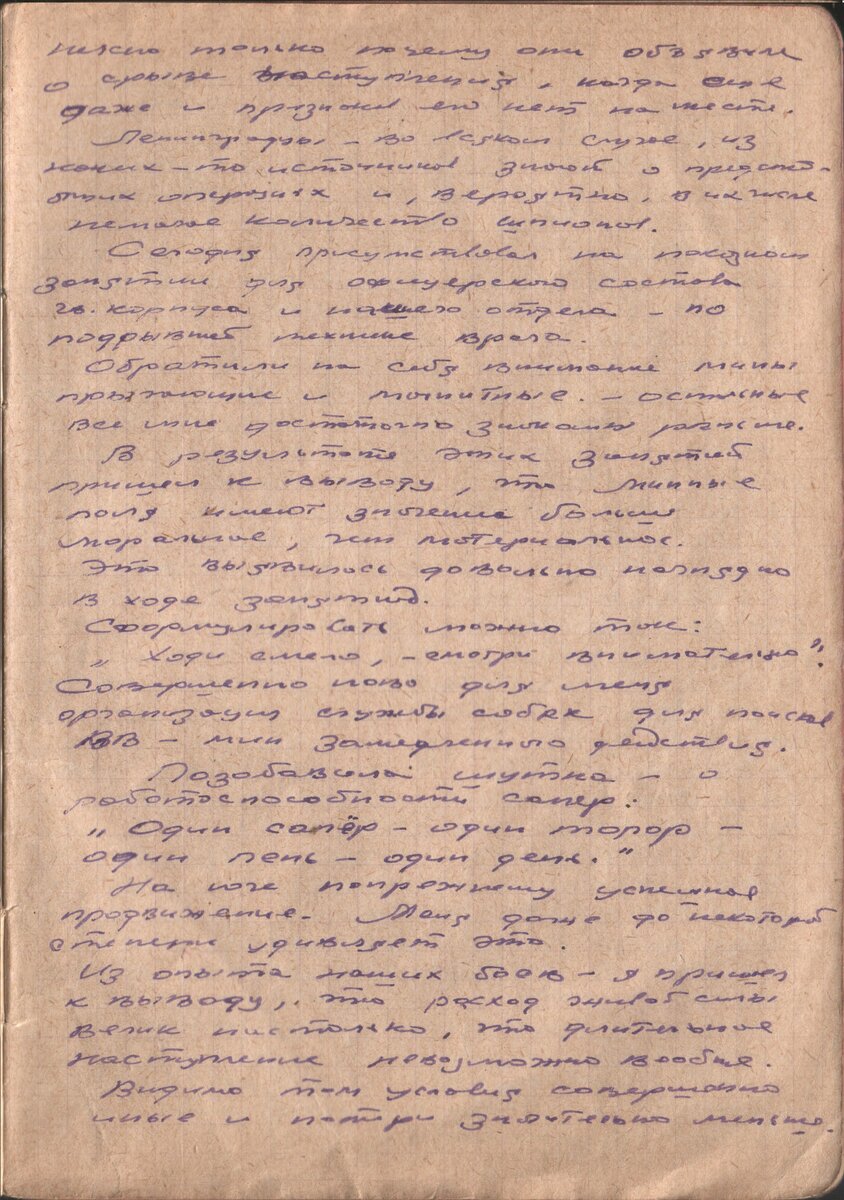 только почему они объявили
о срыве наступления, когда еще
даже и признаков его нет на месте.
Ленинградцы - во всяком случае, из
каких-то источников знают о предсто-
ящих операциях и, вероятно, в их числе
немалое количество шпионов.
Сегодня присутствовал на показном
занятии для офицерского состава
гв. корпуса и нашего отдела - по
подрывной технике врага.
Обратили на себя внимание мины
прыгающие и магнитные. - остальные
все мне достаточно знакомы раньше.
В результате этих занятий
пришел к выводу, что минные
поля имеют значение больше
моральное, чем материальное.
Это выявилось довольно наглядно
в ходе занятий.
Сформулировать можно так:
„Ходи смело, - смотри внимательно".
Совершенно ново для меня
организация службы собак для поисков
ВВ - мин замедленного действия.
Позабавила шутка - о
работоспособности сапер:
„Один сапёр - один топор -
один пень - один день."
На юге попрежнему успешное
продвижение. Меня даже до некоторой
степени удивляет это.
Из опыта наших боев - я пришел
к выводу, что расход живой силы
велик настолько, что длительное
наступление невозможно вообще.
Видимо там условия совершенно
иные и потери значительно меньше.